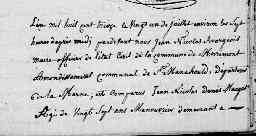 L'an mil huit cent treize le vingt un de juillet environ les sept
heures après midi pardevant nous Jean Nicolas
maire officier de l'état civil de la commune de
arrondissement communal de Ste Manehould, département
de la Marne, est comparu Jean Nicolas Denis
âgé de vingt sept ans Manouvrier demeurant a